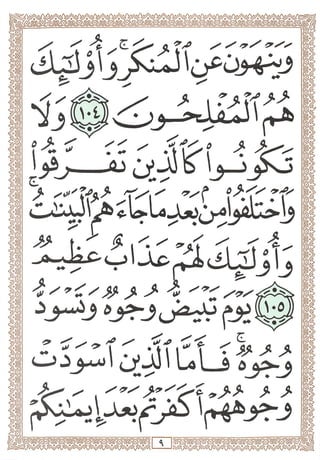 وَيَنْهَوْنَ عَنِ الْمُنكَرِ ۚ وَأُوْلَٰٓئِكَ
هُمُ الْمُفْلِحُونَ ١٠٤ وَلَا
تَكُونُوا كَالَّذِينَ تَفَرَّقُوا
وَاخْتَلَفُوا مِنۢ بَعْدِ مَا جَآءَهُمُ الْبَيِّنَٰتُ ۚ
وَأُوْلَٰٓئِكَ لَهُمْ عَذَابٌ عَظِيمٌ
١٠٥ يَوْمَ تَبْيَضُّ وُجُوهٌ وَتَسْوَدُّ
وُجُوهٌ ۚ فَأَمَّا الَّذِينَ اسْوَدَّتْ
وُجُوهُهُمْ أَكَفَرْتُم بَعْدَ إِيمَٰنِكُمْ
٩